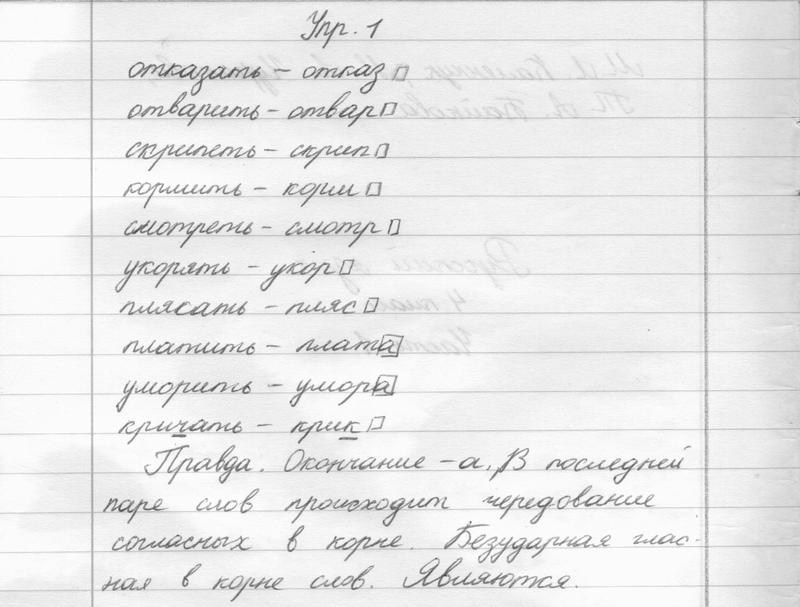 Упр. 1
отказать – отказ
отварить – отвар
скрипеть – скрип
кормить – корм
смотреть – смотр
укорять – укор
плясать – пляс
платить – плата
уморить – умора
кричать – крик
Правда. Окончание –а. В последней
паре слов происходит чередование
согласных в корне. Безударная глас-
ная в корне слов. Являются.